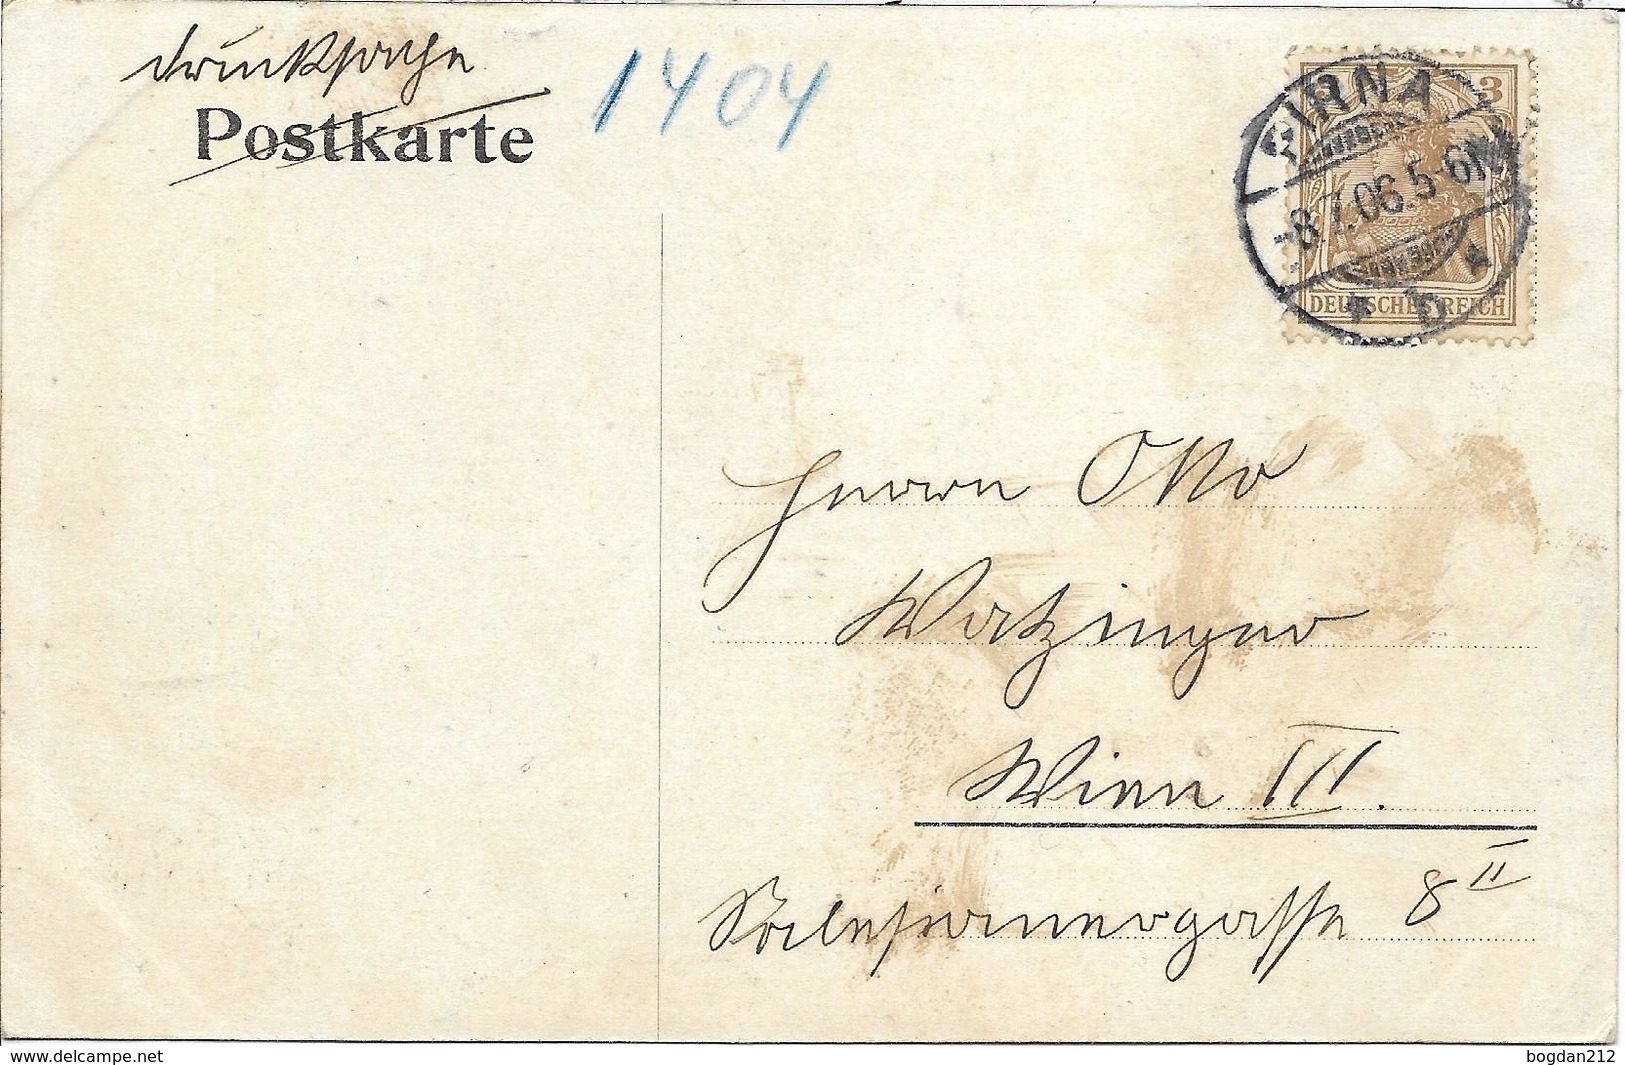 Drucksache
Postkarte
1404
3
PIRNA
-8.7.06.5-6N.
* b *
DEUTSCHES REICH
Herrn Otto
Watzinger
Wien III.
Salesianergasse 8 II
www.delcampe.net
bogdan212